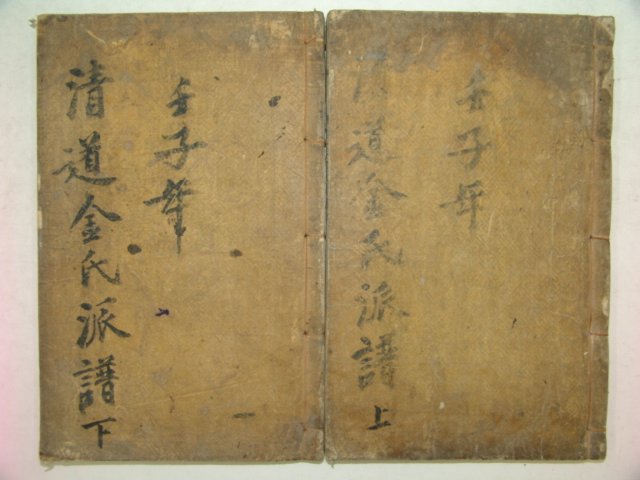 壬子年
清道金氏派譜上
壬子年
清道金氏派譜下